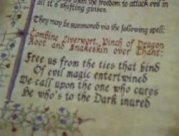 freedom to attack evil in
all it's shifting guises.
They may be summoned via the following spell:
Combine Liverwort, Pinch of Dragon
Root and Snakeskin over Chant:
Free us from the ties that bind
Of evil magic entertwined
We call upon the one who cures
He who's to the Dark inured